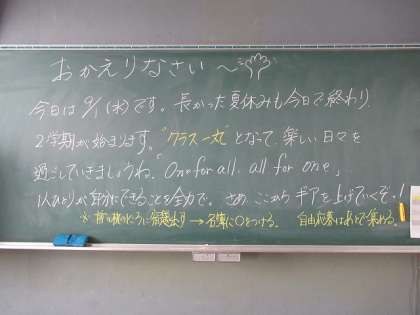 おかえりなさい〜
今日は9/1(水)です。長かった夏休みも今日で終わり
2学期が始まります。"クラス一丸"となって、楽しい日々を
過ごしていきましょうね。「One for all, all for one」
1人ひとりが自分にできることを全力で。さぁ、ここからギアを上げていくぞ!
※ 前の机のところに宿題出す → 名簿に○をつける。 自由応募はあとで集める。